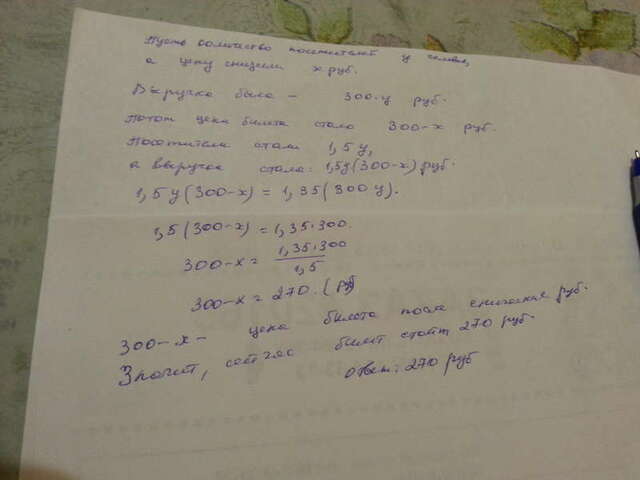 Пусть количество посетителей y человек,
а цену снизили x руб.
Выручка была – 300·y руб.
Потом цена билета стала 300-x руб.
Посетителей стало 1,5y,
а выручка стала: 1,5y(300-x) руб.
1,5y(300-x) = 1,35(300y).
1,5(300-x) = 1,35·300.
300-x = 1,35·300/1,5
300-x = 270. (руб)
300-x – цена билета после снижения руб.
Значит, сейчас билет стоит 270 руб.
Ответ: 270 руб